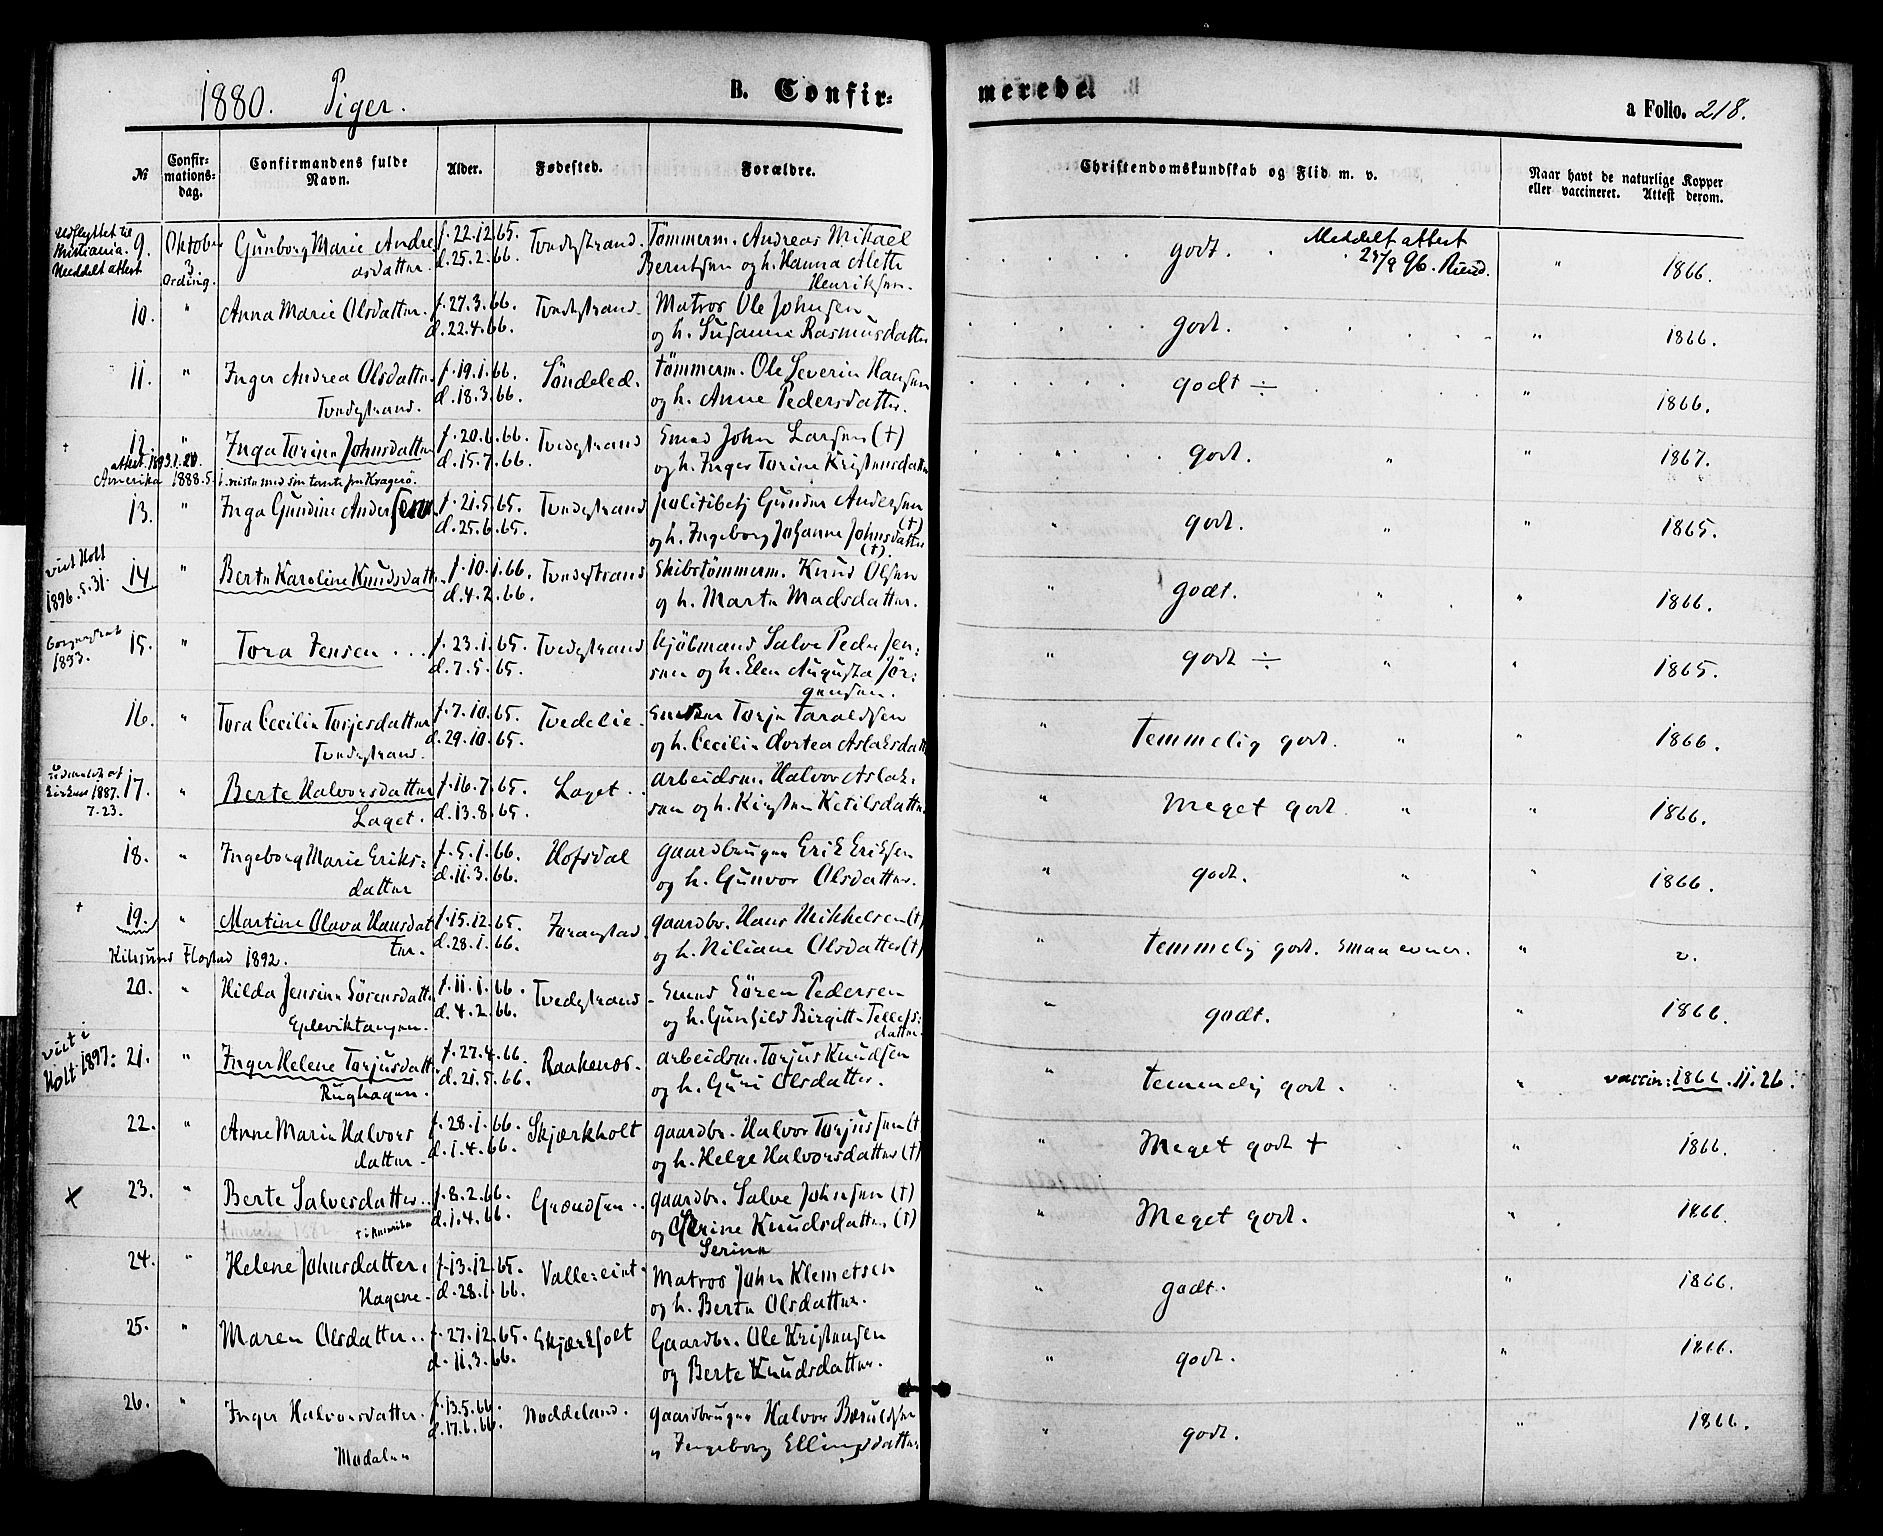 1880. Piger. B. Confir=
merede.
a Folio. 218.
№ Confir=mations=dag. Confirmandens fulde Navn. Alder. Fødested. Forældre. Christendomskundskab og Flid m. v. Naar havt de naturlige Kopper eller vaccineret. Attest derom.
udflyttet til
Kristiania.
Meddelt attest
9. Oktober Gunborg Marie Andre f. 22.12.65. Tvedestrand. Tömmerm. Andreas Mikael godt. Meddelt attest
3 Ording. asdatter. d. 25.2.66. Berntsen og h. Hanna Alethe Henriksen. 1866.
10. " Anna Marie Olsdatter. f. 27.3.66. Tvedestrand. Matros Ole Johnsen godt. " 1866.
d. 22.4.66. og h. Susanne Rasmusdatter
11. " Inger Andrea Olsdatter f. 19.1.66. Söndeled. tömmerm. Ole Severin Hansen godt ÷ " 1866.
Tvedestrand. d. 18.3.66. og h. Anne Pedersdatter.
† 12. " Inga Torine Johnsdatter f. 20.6.66. Tvedestrand Smed John Larsen (†) godt. " " 1867.
attest 1893.1.20. d. 15.7.66. og h. Inger Torine Kristensdatter
Amerika 1888.5.
13. " Inga Gundine Andersen f. 21.5.65. Tvedestrand politibetj Gunder Andersen (†) " godt. " " 1865.
d. 25.6.65. og h. Ingeborg Johanne Johnsdatter (†).
viet Holt
1896.5.31.
14 " Berte Karoline Knudsdatter f. 10.1.66. Tvedestrand Skibstömmerm. Knud Olsen " godt. " " 1866.
d. 4.2.66. og h. Marte Madsdatter.
1893.
15. " Tora Jensen f. 23.1.65. Tvedestrand Kjöbmand Salve Peder Jen= " godt ÷ " " 1865.
d. 7.5.65. sen og h. Elen Augusta Jör=
gensen.
16. " Tora Cecilie Torjesdatter f. 7.10.65. Tvedelie. Torje Taraldsen " temmelig godt. " " 1866.
Tvedestrand. d. 29.10.65. og h. Cecilie Dortea Aslaksdatt
1887.
7.23.
17. " Berte Halvorsdatter f. 16.7.65. Laget. arbeidsm. Halvor Aslak= " Meget godt " " 1866.
Laget. d. 13.8.65. sen og h. Kirsten Ketilsdatter
18. " Ingeborg Marie Eriks= f. 5.1.66. Hofsdal gaardbruger Erik Eriksen " godt. " " 1866.
datter d. 11.3.66. og h. Gunvor Olsdatter.
† 19. " Martine Olava Hansdat f. 15.12.65. gaardbr. Hans Mikkelsen (†) " temmelig godt. Smaa evner. " v.
ter. d. 28.1.66. og h. Niliane Olsdatter (†)
Kilsund Flostad 1892.
20. " Hilda Jensine Sörensdatter f. 11.1.66. Tvedestrand Smed Sören Pedersen " godt. " 1866.
Epleviktangen. d. 4.2.66. og h. Gunhild Birgitte Tellefs=
datter.
viet i
Holt 1897:
21. " Inger Helene Torjusdatt f. 27.4.66. Raakenes. arbeidsm. Torjus Knudsen " temmelig godt. " vaccin: 1866.11.26.
Rughagen. d. 21.5.66. og h. Guri Olsdatter.
22. " Anne Marie Halvors f. 28.1.66. Skjærkholt gaardbr. Halvor Torjussen (†) " Meget godt + " 1866.
datter. d. 1.4.66. og h. Helge Halvorsdatter (†)
× 23. " Berte Salvesdatter f. 8.2.66. gaardbr. Salve Johnsen (†) " Meget godt. " 1866.
† i Amerika d. 1.4.66. og Serine Knudsdatter (†)
Serine
24. " Helene Johnsdatter. f. 13.12.65. Matros John Klemetsen " godt. " 1866.
Hagene. d. 28.1.66. og h. Berte Olsdatter.
25. " Maren Olsdatter f. 27.12.65. Skjærkholt Gaardbr. Ole Kristensen " godt. " 1866.
d. 11.3.66. og Berte Knudsdatter.
26. " Inger Halvorsdatter. f. 13.5.66. Noddeland. gaardbruger Halvor " godt. " 1866.
d. 17.6.66. " Ingeborg Ellingsdatter